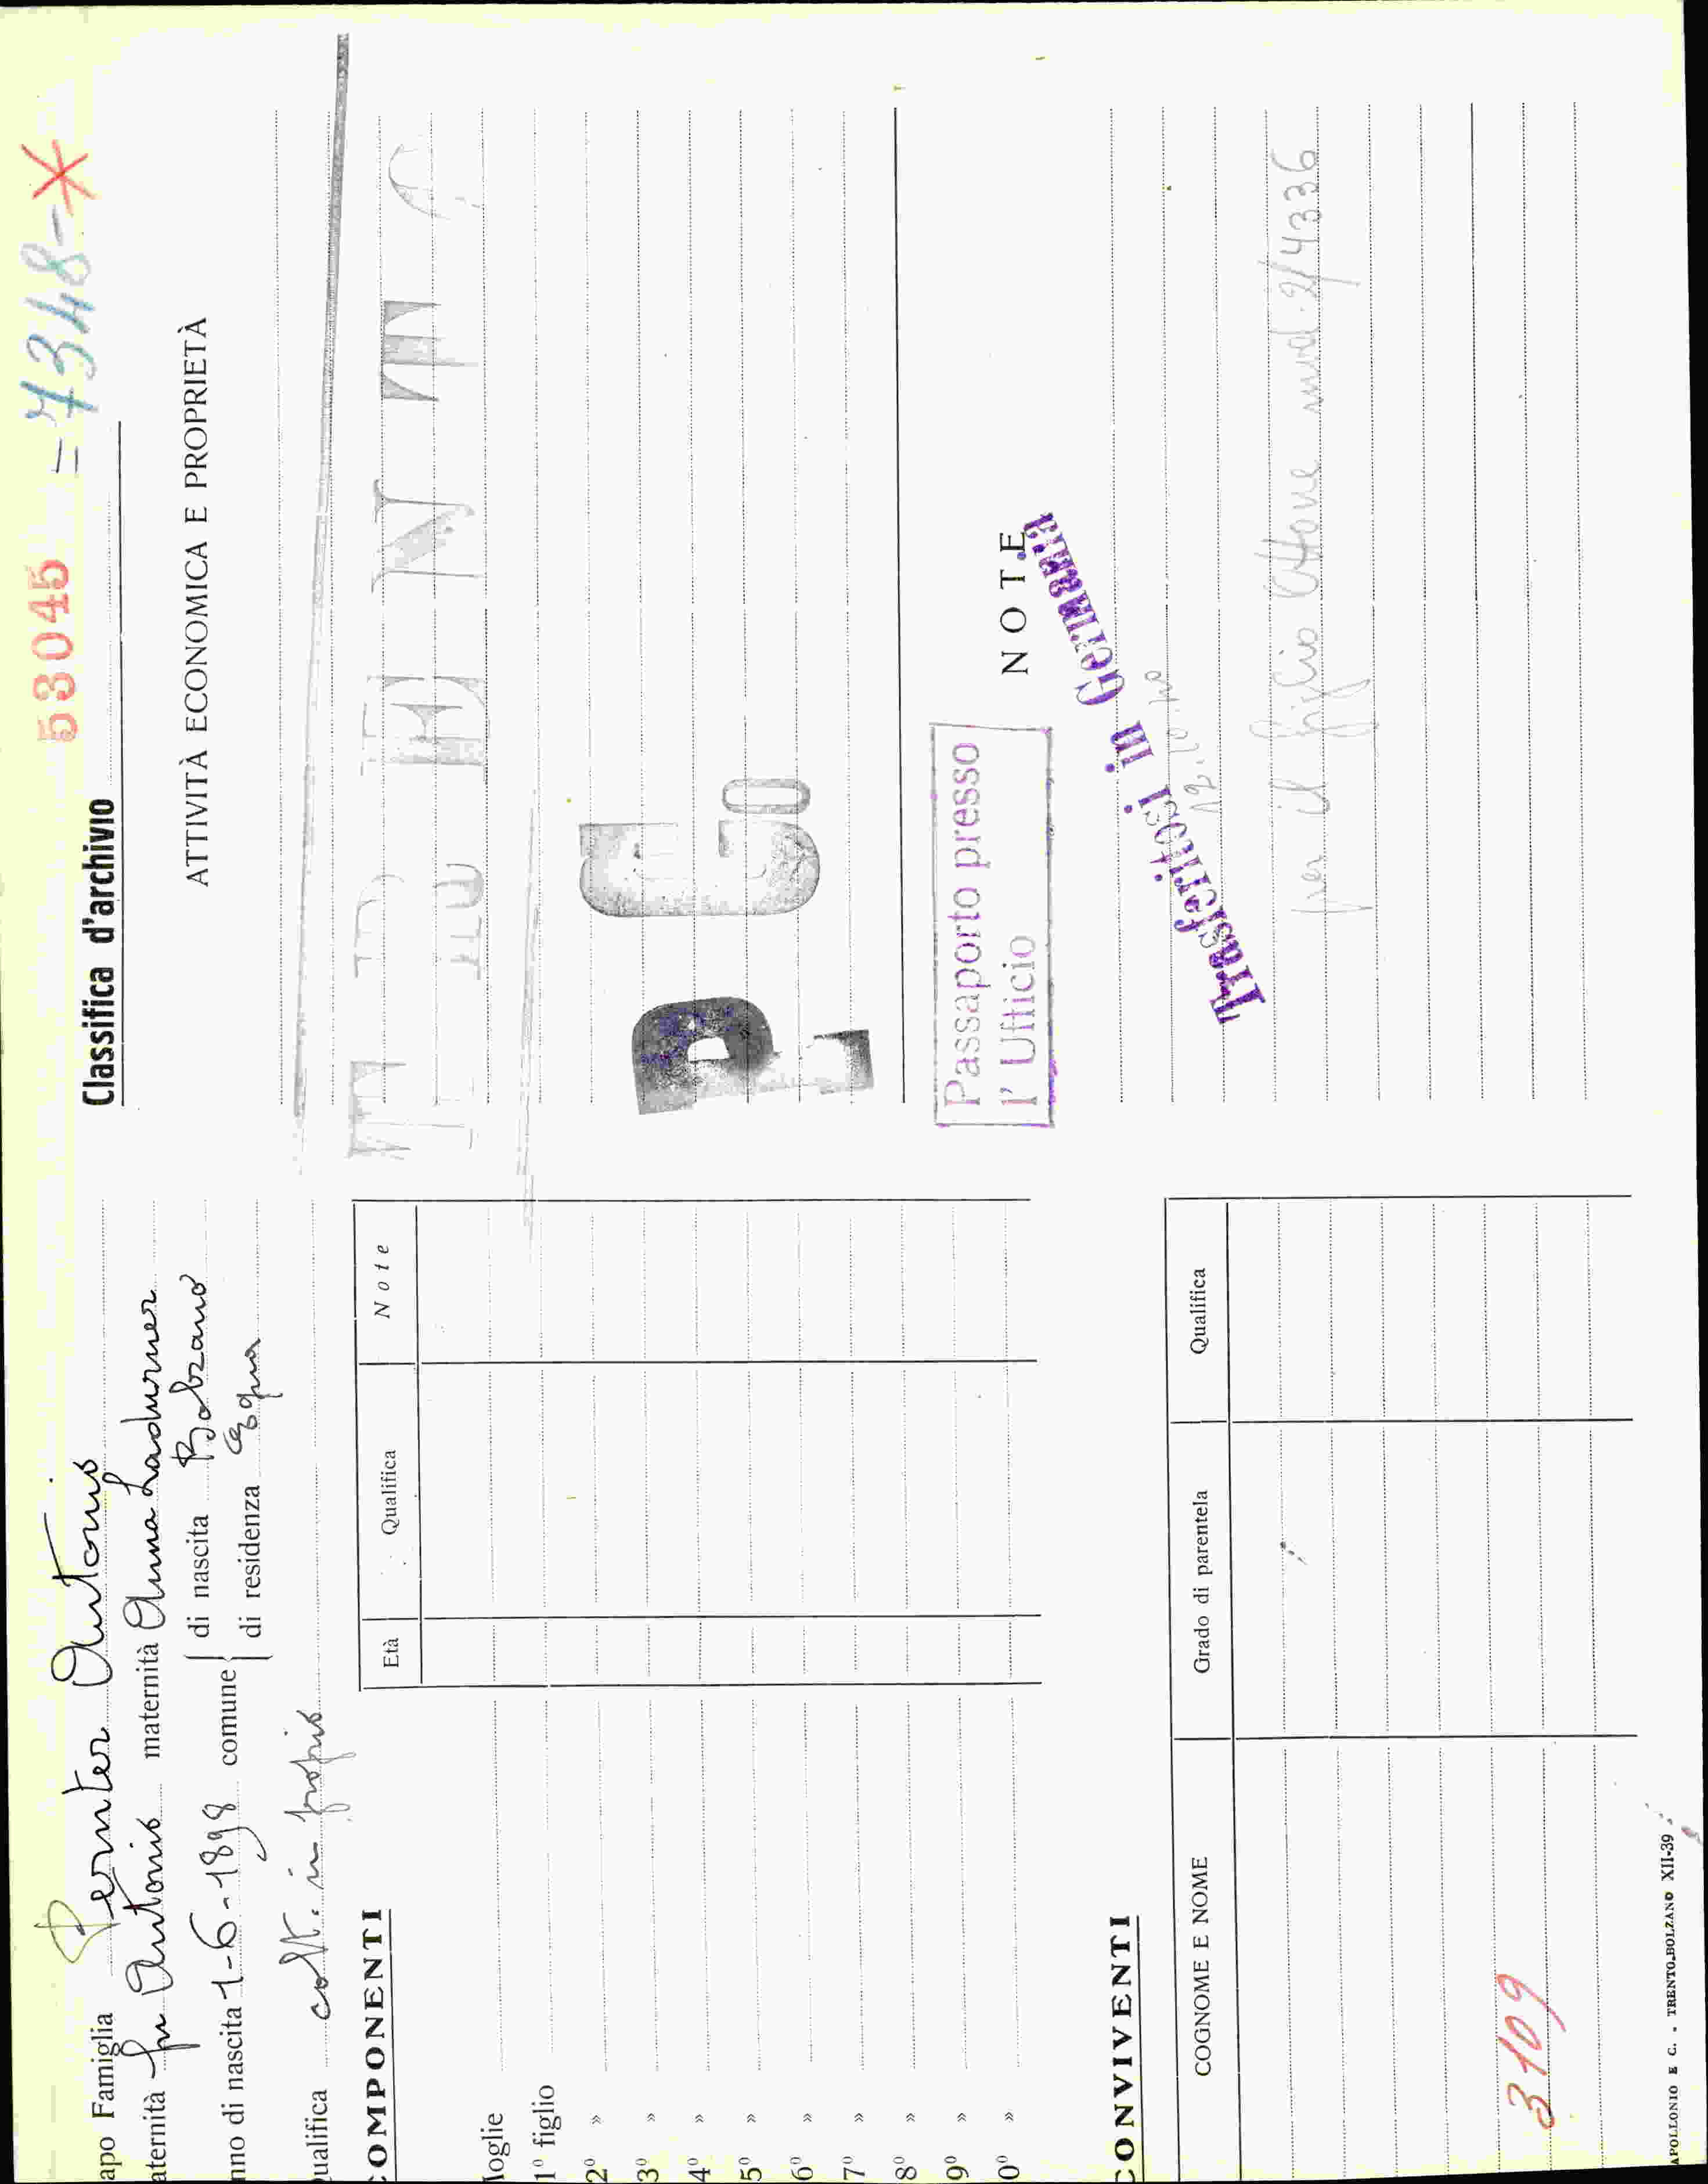 apo Famiglia Pernter Antonio
aternità fu Antonio maternità Anna Ladurner
nno di nascita 1-6-1898 comune di nascita Bolzano
di residenza
ualifica colt. in proprio
COMPONENTI
Età Qualifica Note
Moglie
1º figlio
2º »
3º »
4º »
5º »
6º »
7º »
8º »
9º »
0º »
CONVIVENTI
COGNOME E NOME Grado di parentela Qualifica
3109
APOLLONIO E C. - TRENTO-BOLZANO XII-39
53045 = 7348-*
Classifica d'archivio
ATTIVITÀ ECONOMICA E PROPRIETÀ
NOTE
Passaporto presso
l' Ufficio
Trasferitosi in Germania
per il figlio Ottone 2/4336